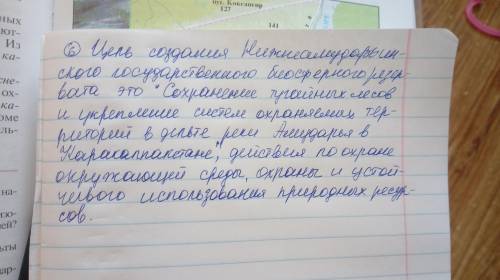 пут. Коксангир
127
141
⑥ Цель создания Нижнеамударьин-
ского государственного биосферного резер-
вата это "Сохранение тугайных лесов
и укрепление систем охраняемых тер-
риторий в дельте реки Амударья в
Каракалпакстане", действия по охране
окружающей среды, охраны и устой-
чивого использования природных ресур-
сов.